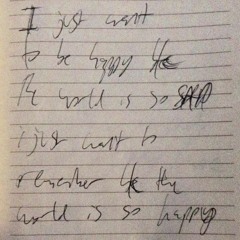 I just want
to be happy like
the world is so SAD
I just want to
remember like the
world is so happy